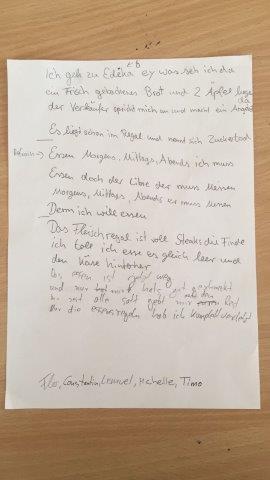 Ich geh zu Edeka ey was seh ich da
ein Frisch gebackenes Brot und 2 Äpfel liegen da
der Verkäufer spricht mich an und macht ein Angebot
Es liegt schon im Regal und nennt sich Zuckerbrot
Refrain → Essen Morgens, Mittags, Abends ich muss
Essen doch der Libre der muss Messen
Morgens, Mittags, Abends er muss
Denn ich will essen
Das Fleischregal ist voll Steaks die Finde
ich toll ich esse es gleich leer und
den Käse hinterher
Das essen ist jetzt weg
und mir hat gut geschmeckt
ihr seit alle satt gebt mir den Rest
die essensregeln hab ich komplett verletzt
Flo, Constantin, Lennuel, Michelle, Timo